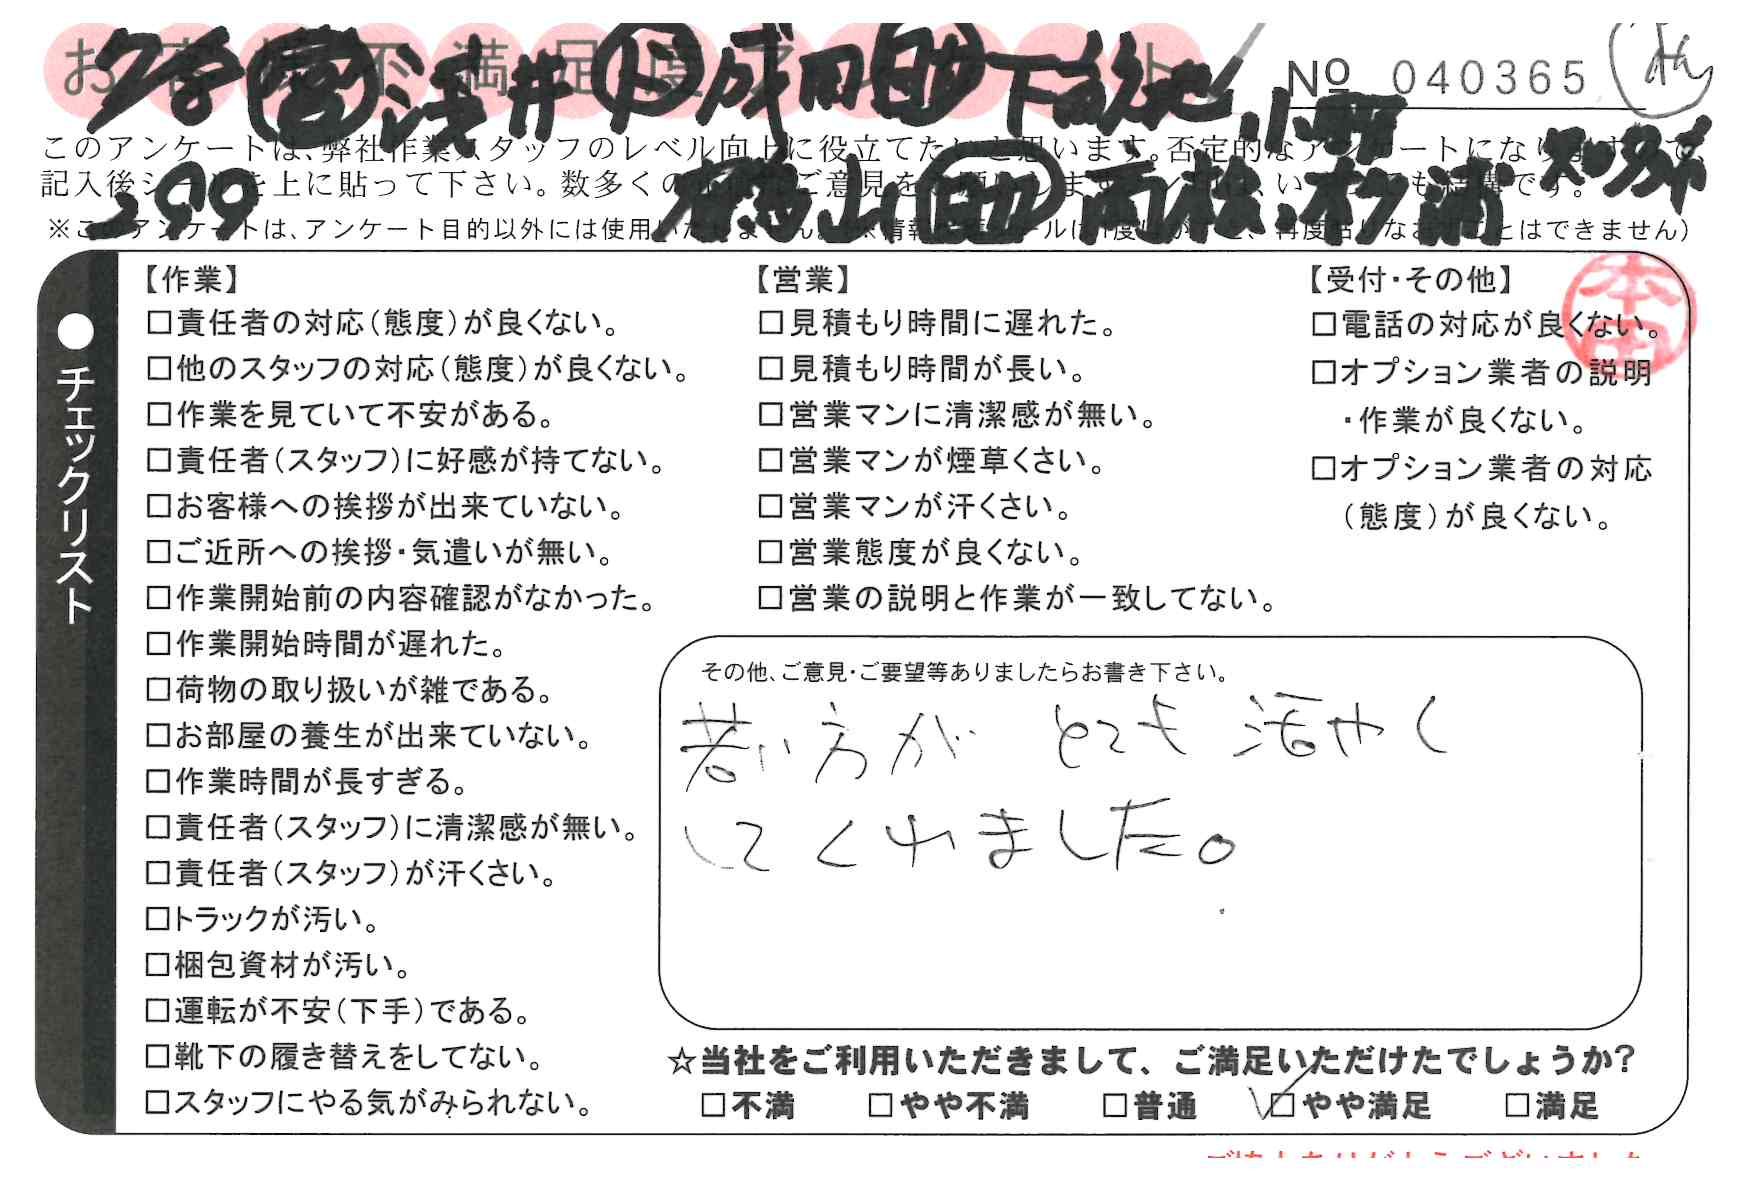 お客様不満足度アンケート
No 040365
浅井 ト 成田 助 下
299
山 助 高松 松浦
このアンケートは、弊社作業スタッフのレベル向上に役立てたいと思います。否定的なアンケートになりますので、
記入後シールを上に貼って下さい。数多くの
※このアンケートは、アンケート目的以外には使用いたしません。
とはできません)
本田
●チェックリスト
【作業】
□責任者の対応(態度)が良くない。
□他のスタッフの対応(態度)が良くない。
□作業を見ていて不安がある。
□責任者(スタッフ)に好感が持てない。
□お客様への挨拶が出来ていない。
□ご近所への挨拶・気遣いが無い。
□作業開始前の内容確認がなかった。
□作業開始時間が遅れた。
□荷物の取り扱いが雑である。
□お部屋の養生が出来ていない。
□作業時間が長すぎる。
□責任者(スタッフ)に清潔感が無い。
□責任者(スタッフ)が汗くさい。
□トラックが汚い。
□梱包資材が汚い。
□運転が不安(下手)である。
□靴下の履き替えをしてない。
□スタッフにやる気がみられない。
【営業】
□見積もり時間に遅れた。
□見積もり時間が長い。
□営業マンに清潔感が無い。
□営業マンが煙草くさい。
□営業マンが汗くさい。
□営業態度が良くない。
□営業の説明と作業が一致してない。
【受付・その他】
□電話の対応が良くない。
□オプション業者の説明
・作業が良くない。
□オプション業者の対応
(態度)が良くない。
その他、ご意見・ご要望等ありましたらお書き下さい。
若い方が とても 活やく
してくれました。
☆当社をご利用いただきまして、ご満足いただけたでしょうか?
□不満 □やや不満 □普通 ☑やや満足 □満足
ご協力ありがとうございました